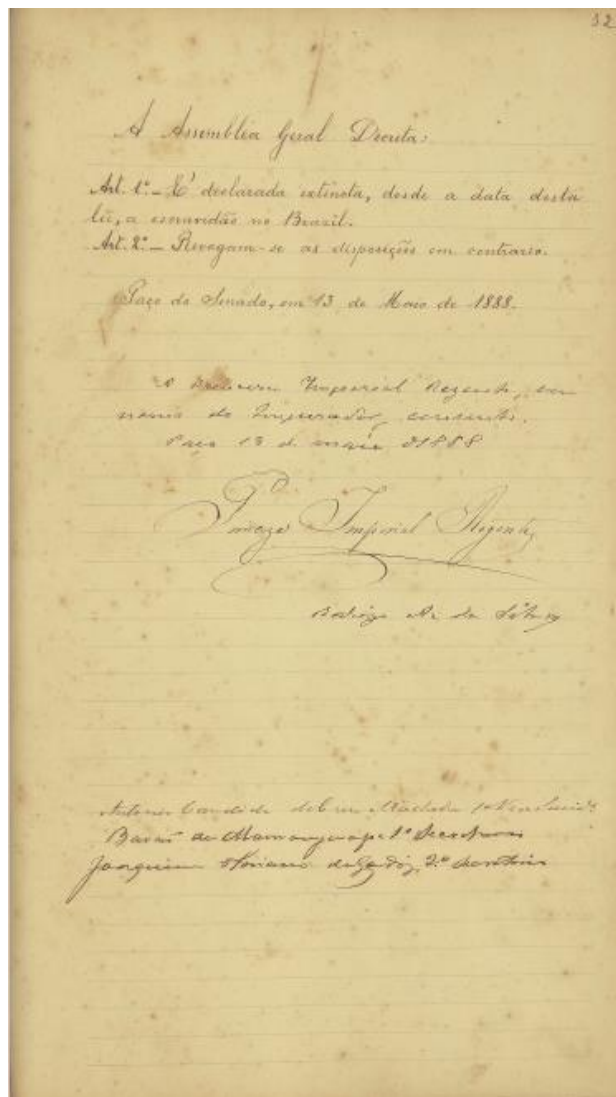 12
A Assembléa Geral Decreta:
Art. 1º_ E' declarada extincta, desde a data desta
lei, a escravidão no Brazil.
Art. 2º_ Revogam-se as disposições em contrario.
Paço do Senado, em 13 de Maio de 1888.
A Princesa Imperial Regente, em
nome do Imperador, consente.
Paço 13 de maio d 1888
Princeza Imperial Regente
Rodrigo A. da Silva
Antonio Candido da Cruz Machado 1º
Barão de Mamanguape 1º Secretario
Joaquim Floriano de Godoy, 2º Secretario